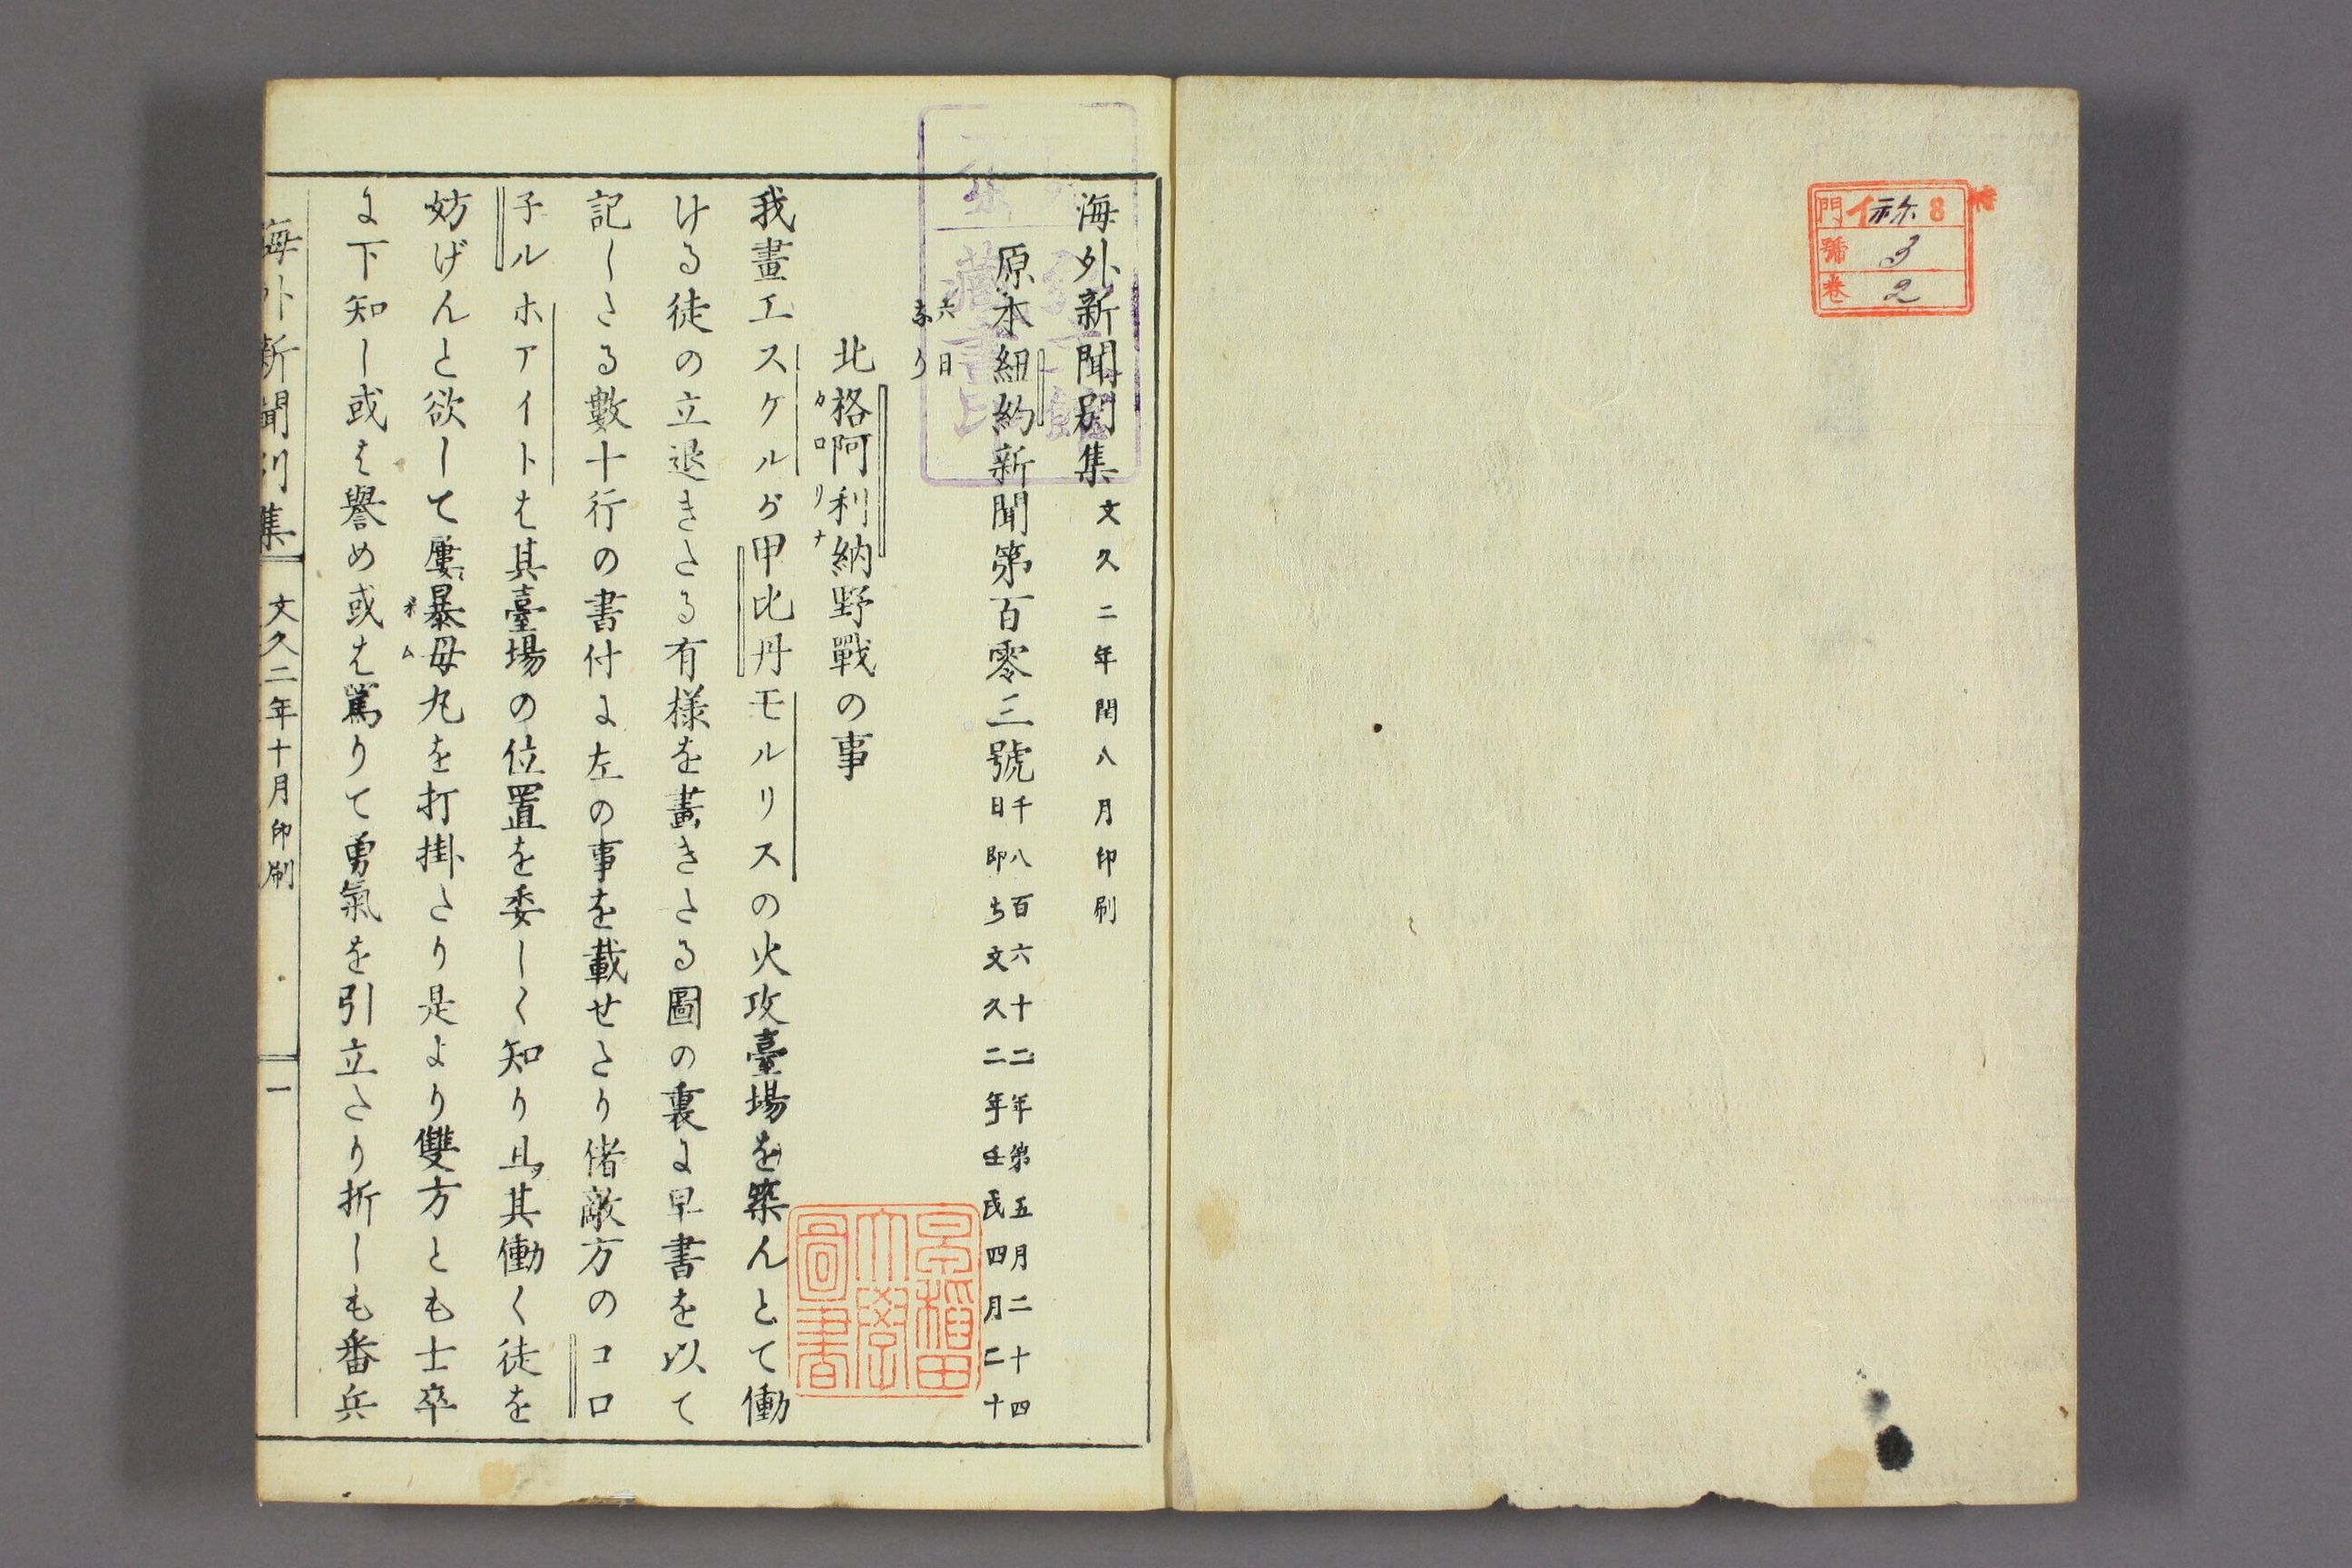 門 㐧 8
號 3
卷 2
海外新聞別集 文久二年閏八月印刷
原本紐約新聞第百零三號 千八百六十二年第五月二十四日即ち文久二年壬戌四月二十
六日なり
北格啊利納野戰の事
カロリナ
我畫工スケルグ甲比丹モルリスの火攻臺場を築んとて働
ける徒の立退きたる有様を畫きたる圖の裏に早書を以て
記したる數十行の書付に左の事を載せたり偖敵方のコロ
子ルホアイトは其臺場の位置を委しく知り且其働く徒を
妨げんと欲して屢暴母丸を打掛たり是より雙方とも士卒
ボム
に下知し或は譽め或は罵りて勇氣を引立たり折しも番兵
海外新聞別集 文久二年十月印刷 一
早稲田大學圖書
藏書印